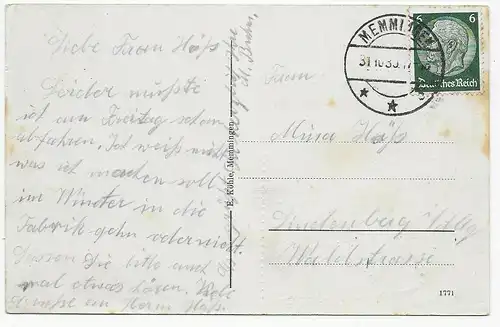 Liebe Frau Häß
Leider mußte
ich am Freitag schon
abfahren. Ich weiß nicht
was ich machen soll
im Winter in die
Fabrik gehn oder nicht.
Lassen Sie bitte auch
mal etwas hören. Viele
Grüße an Herrn Häß.
E. Köhle, Memmingen
MEMMINGEN
31.10.35.
6 6
Deutsches Reich
Frau
Mina Häß
Lindenberg / Allg
Waldstrasse
1771